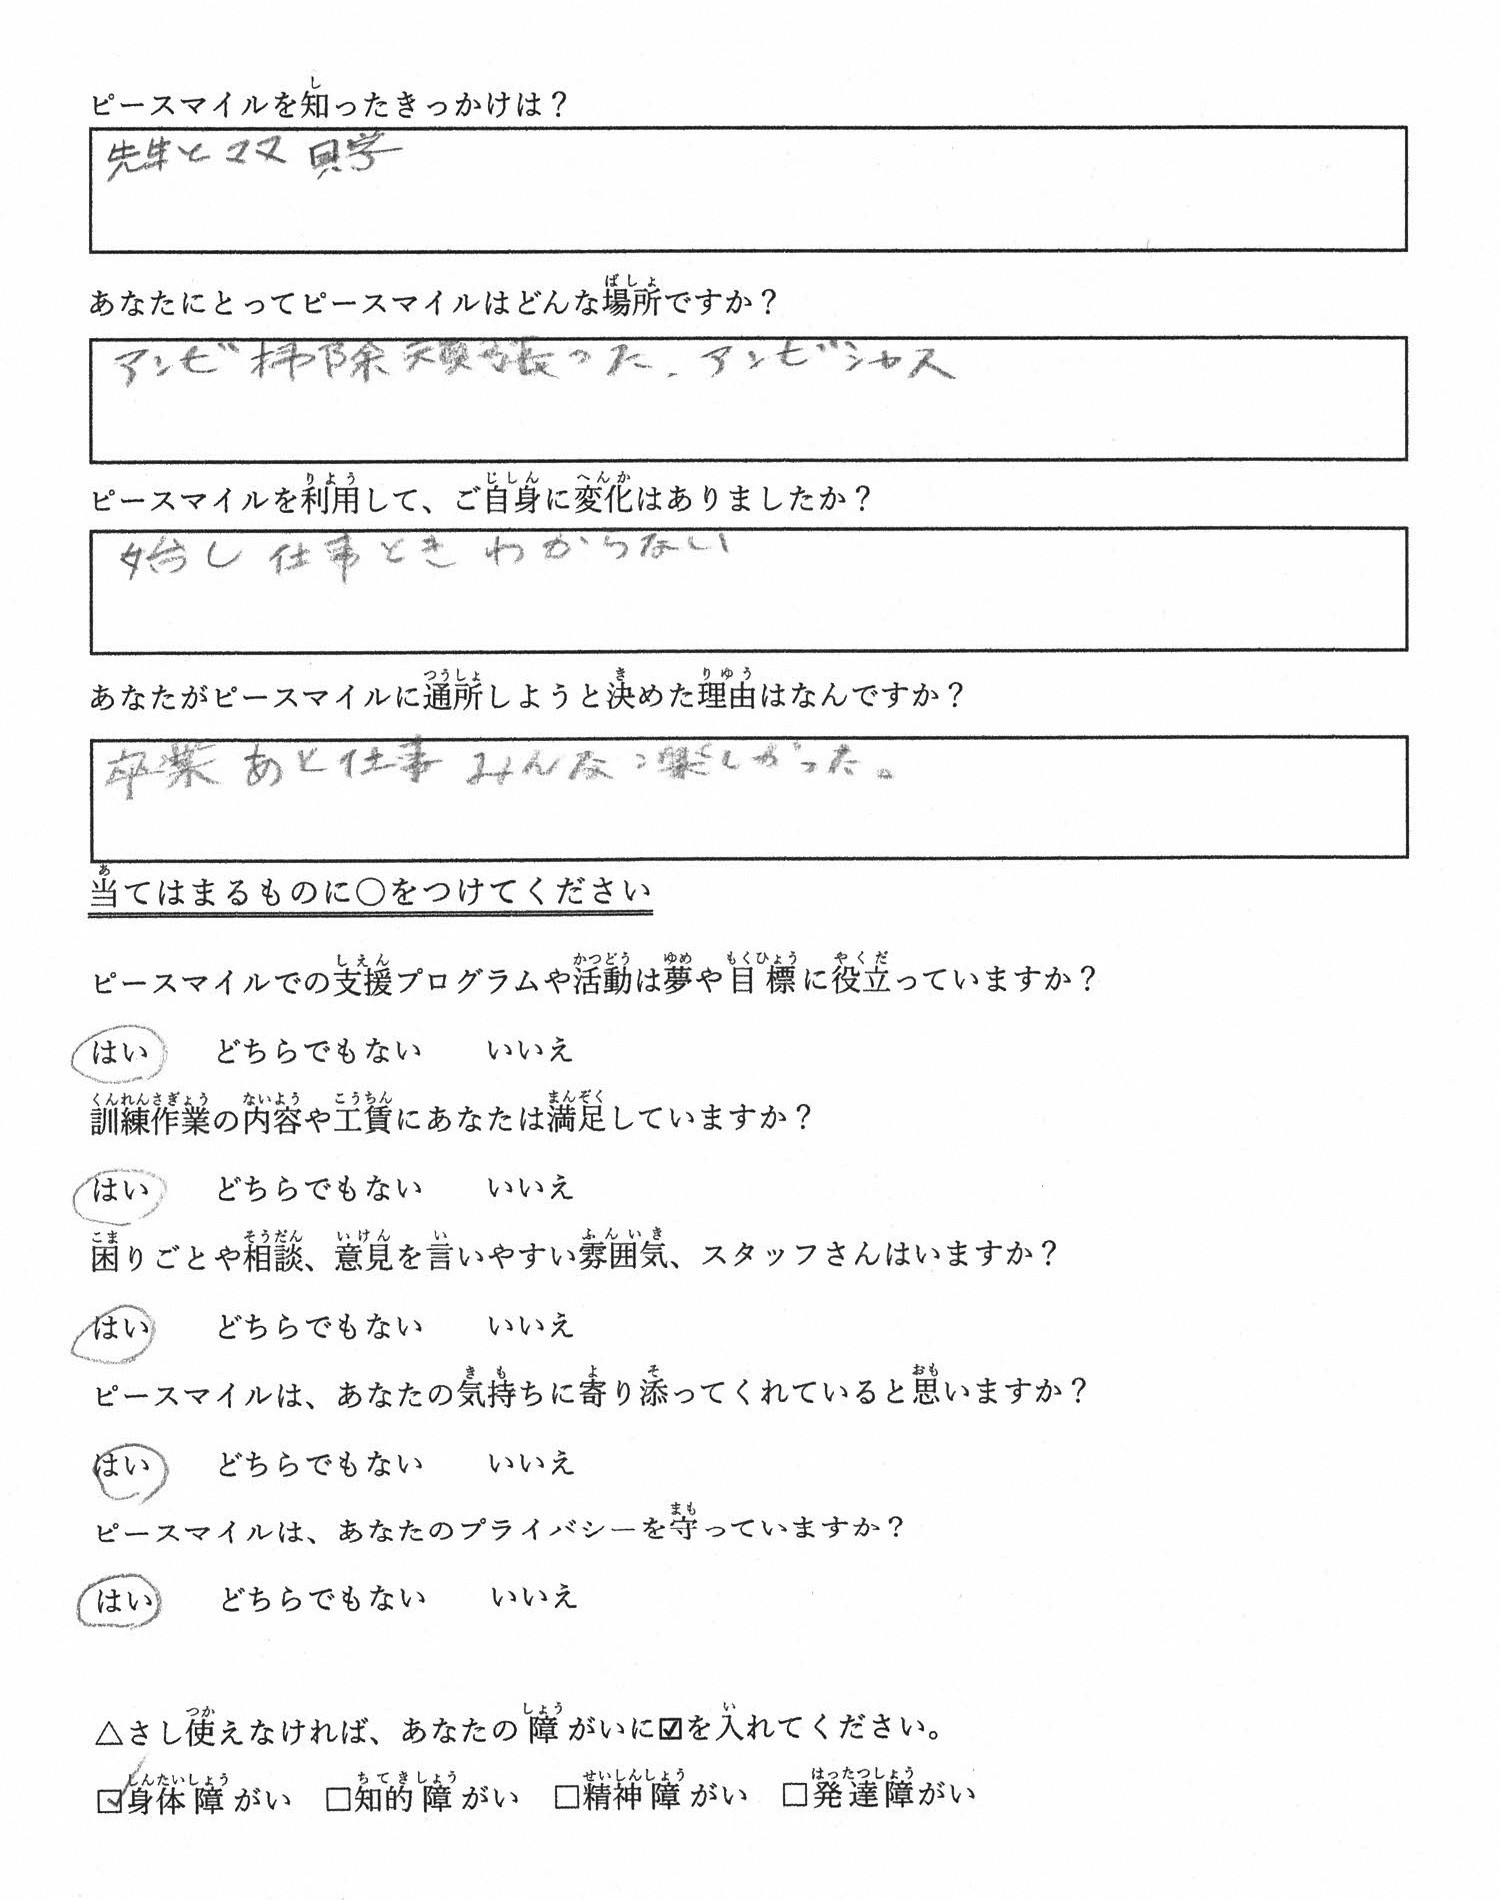 ピースマイルを知ったきっかけは？
先生とママ 見学
あなたにとってピースマイルはどんな場所ですか？
アンビ 掃除 頑張った、アンビシャス
ピースマイルを利用して、ご自身に変化はありましたか？
始し 仕事とき わからない
あなたがピースマイルに通所しようと決めた理由はなんですか？
卒業 あと仕事 みんな 楽しかった。
当てはまるものに〇をつけてください
ピースマイルでの支援プログラムや活動は夢や目標に役立っていますか？
はい どちらでもない いいえ
訓練作業の内容や工賃にあなたは満足していますか？
はい どちらでもない いいえ
困りごとや相談、意見を言いやすい雰囲気、スタッフさんはいますか？
はい どちらでもない いいえ
ピースマイルは、あなたの気持ちに寄り添ってくれていると思いますか？
はい どちらでもない いいえ
ピースマイルは、あなたのプライバシーを守っていますか？
はい どちらでもない いいえ
△さし使えなければ、あなたの障がいに☑を入れてください。
☑身体障がい □知的障がい □精神障がい □発達障がい